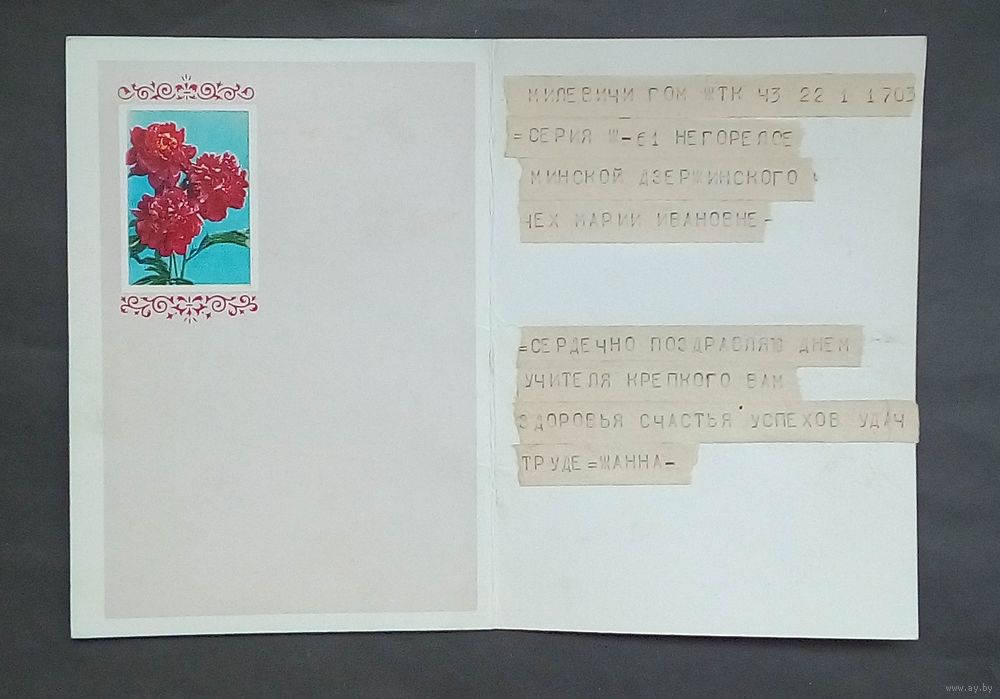 МИЛЕВИЧИ ГОМ ШТК ЧЗ 22 1 1703
=СЕРИЯ Ш-61 НЕГОРЕЛОЕ
МИНСКОЙ ДЗЕРЖИНСКОГО
ЧЕХ МАРИИ ИВАНОВНЕ-
=СЕРДЕЧНО ПОЗДРАВЛЯЮ ДНЕМ
УЧИТЕЛЯ КРЕПКОГО ВАМ
ЗДОРОВЬЯ СЧАСТЬЯ УСПЕХОВ УДАЧ
ТРУДЕ=ЖАННА-
www.ay.by